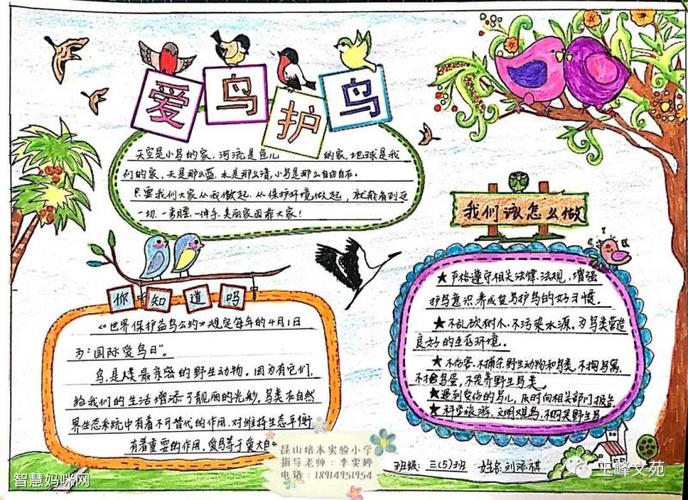 爱鸟护鸟
天空是小鸟的家,河流是鱼儿 的家,地球是我
们的家,天是那么蓝,水是那么清,小鸟是那么自由自在。
只要我们大家从我做起,从保护环境做起,就能看到这
一切,
美丽家园靠大家!
我们该怎么做
★严格遵守相关法律、法规,增强
护鸟意识养成爱鸟护鸟的好习惯。
★不乱砍树木,不污染水源,为鸟类营造
良好的生存环境。
★不伤害、不捕杀野生动物和鸟类,不掏鸟窝,
不掏鸟蛋,不饲养野生鸟类。
★遇到受伤的鸟儿,及时向相关部门报告
★科学旅游,文明观鸟,不惊吓野鸟
你知道吗
《世界保护益鸟公约》规定每年的4月1日
为“国际爱鸟日”。
鸟,是人类最亲密的野生动物,因为有它们,
给我们的生活增添了靓丽的光彩,鸟类在自然
界生态系统中有着不可替代的作用,对维持生态平衡
有着重要的作用,爱鸟等于爱大自
昆山培本实验小学
指导老师:李雯婷
电话:18914951954
班级:三(5)班 姓名:刘沐祺
智慧妈咪网
玉峰文苑